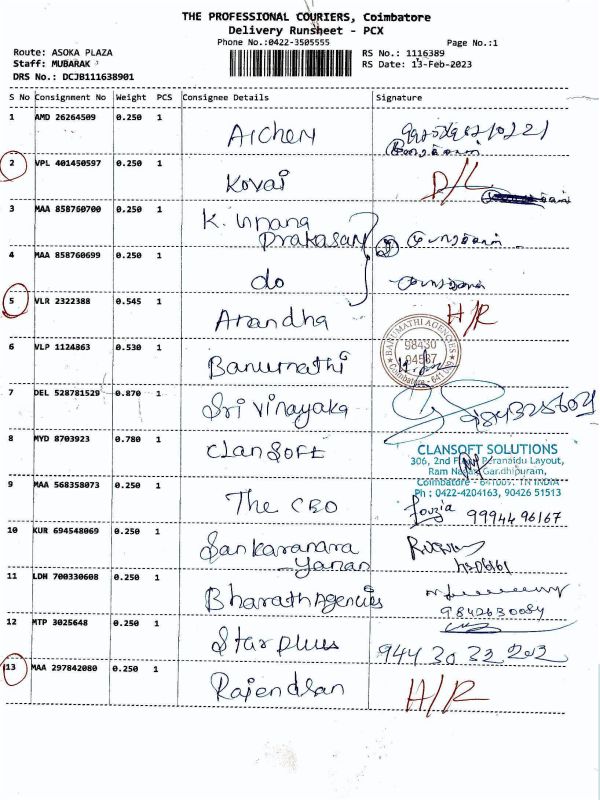 THE PROFESSIONAL COURIERS, Coimbatore
Delivery Runsheet - PCX
Phone No.:0422-3505555
Page No.:1
Route: ASOKA PLAZA
Staff: MUBARAK
DRS No.: DCJB111638901
RS No.: 1116389
RS Date: 13-Feb-2023
S No Consignment No Weight PCS Consignee Details Signature
1 AMD 26264509 0.250 1 Archery
2 VPL 401450597 0.250 1 Kovai D/L
3 MAA 858760700 0.250 1 K.
Prakasam
4 MAA 858760699 0.250 1 do
5 VLR 2322388 0.545 1 Anandha H/R
6 VLP 1124863 0.530 1 Banumathi
BANUMATHI AGENCIES
98430
94587
Coimbatore - 641
7 DEL 528781529 0.870 1 Sri Vinayaka
8 MYD 8703923 0.780 1 ClanSoft
CLANSOFT SOLUTIONS
306, 2nd Peranaidu Layout,
Ram Nagar Gandhipuram,
Coimbatore - 641009. TN INDIA
Ph : 0422-4204163, 90426 51513
9 MAA 568358073 0.250 1 The CEO Fouzia 9994496167
10 KUR 694548069 0.250 1 Sankaranara
yanan
11 LDH 700330608 0.250 1 Bharath Agencies
9842630084
12 MTP 3025648 0.250 1 Star plus 944 30 32 202
13 MAA 297842080 0.250 1 Rajendran H/R